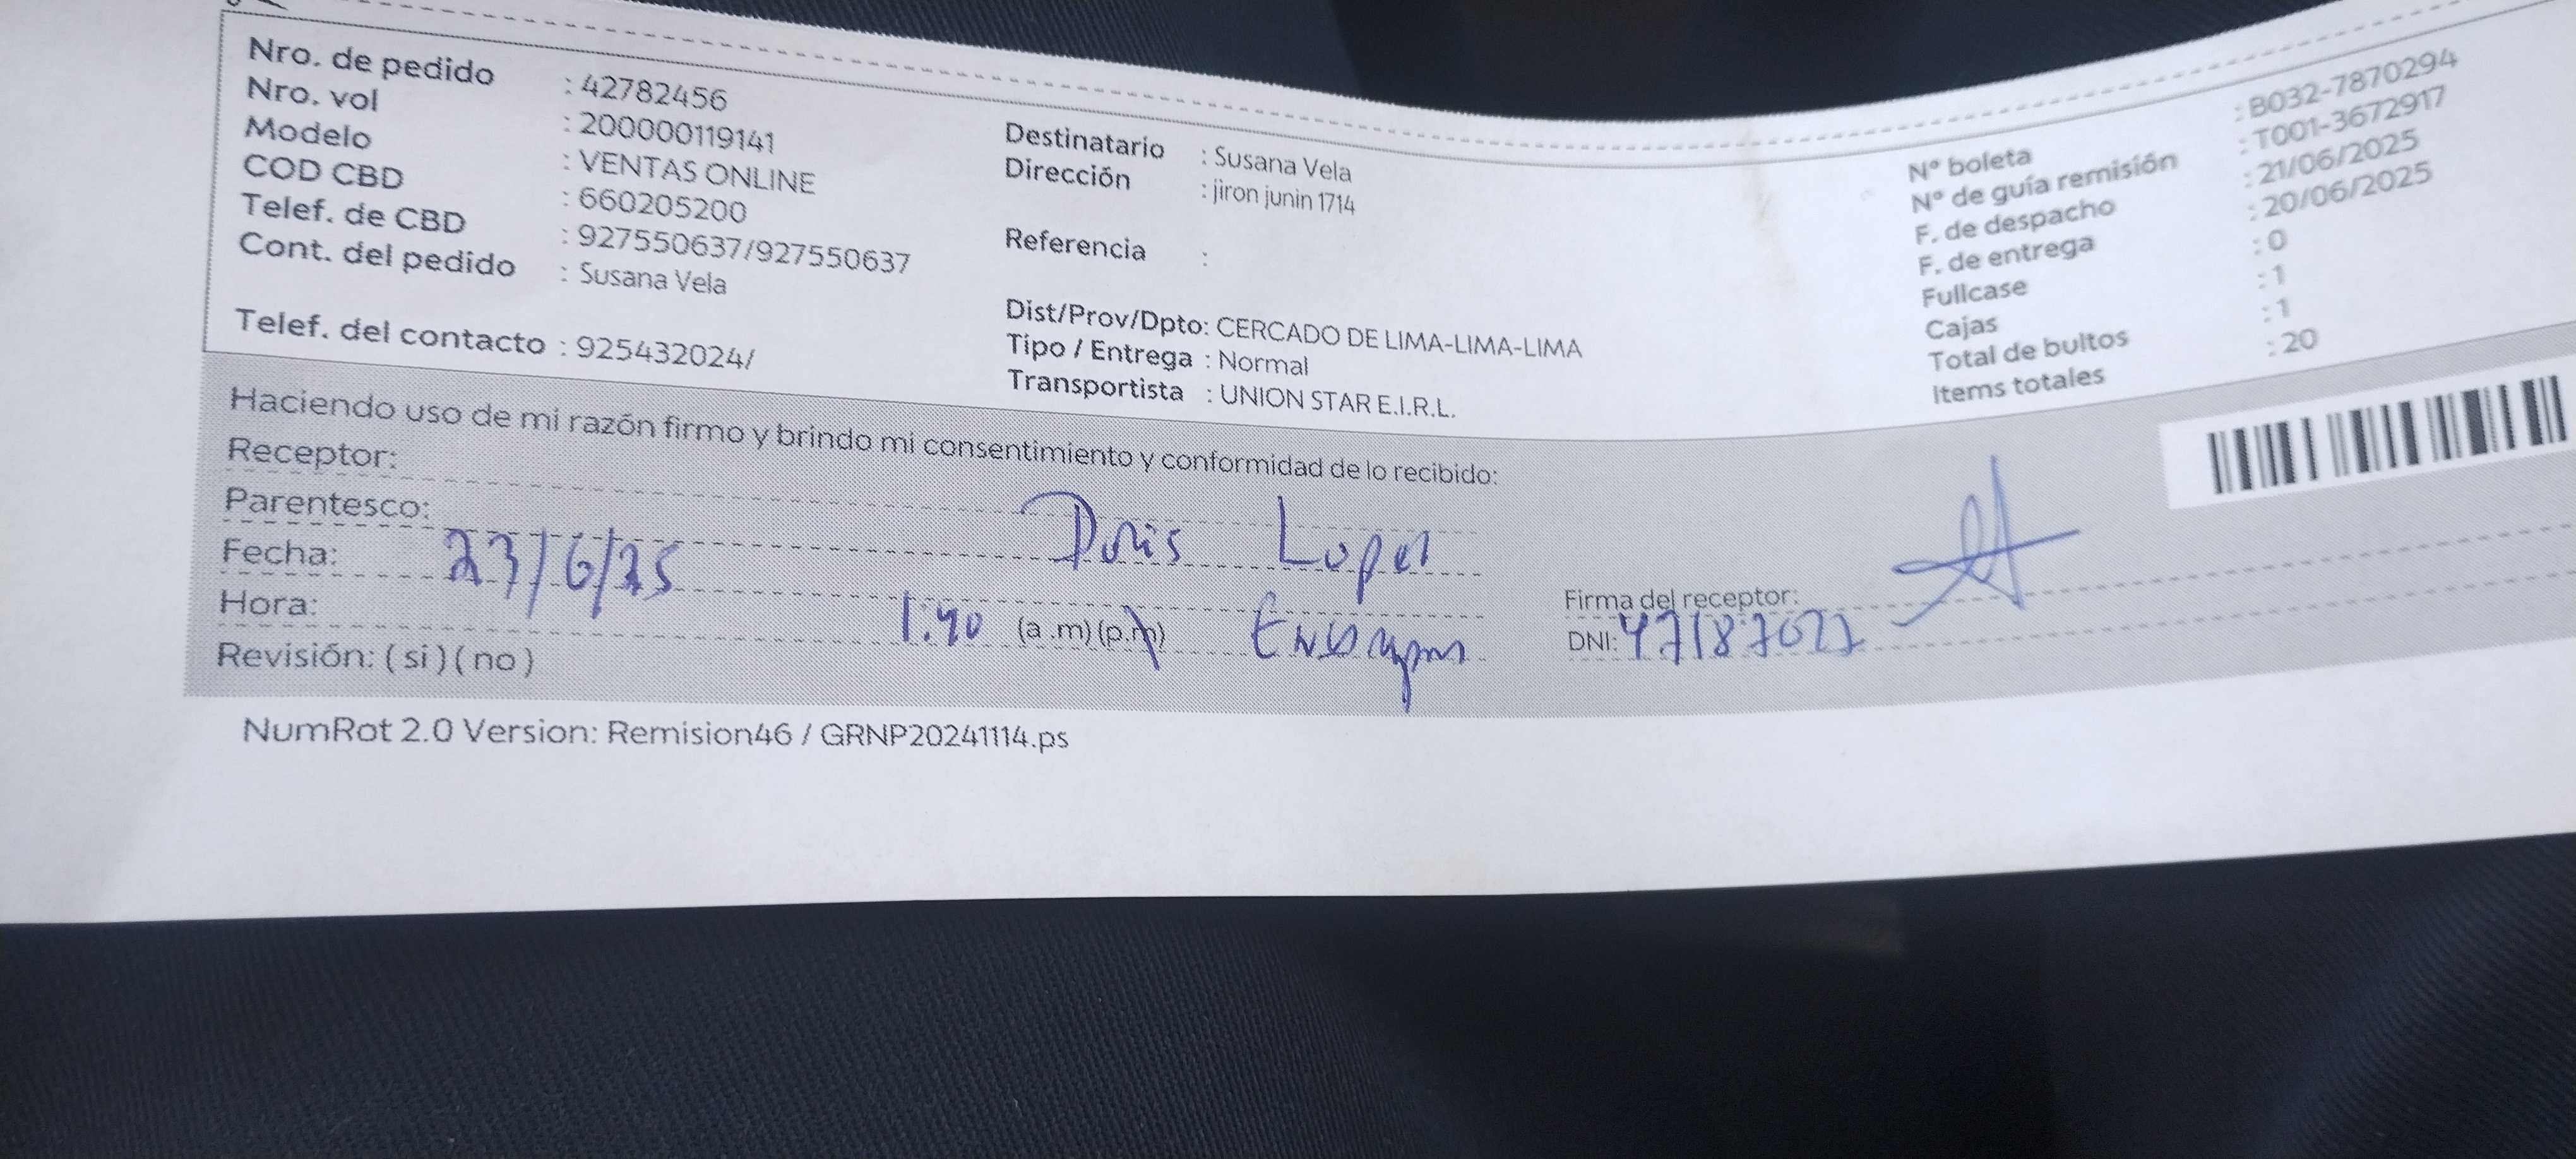 Nro. de pedido : 42782456
Nro. vol : 200000119141
Modelo : VENTAS ONLINE
COD CBD : 660205200
Telef. de CBD : 927550637/927550637
Cont. del pedido : Susana Vela
Telef. del contacto : 925432024/
Destinatario : Susana Vela
Dirección : jiron junin 1714
Referencia :
Dist/Prov/Dpto: CERCADO DE LIMA-LIMA-LIMA
Tipo / Entrega : Normal
Transportista : UNION STAR E.I.R.L.
N° boleta : B032-7870294
N° de guía remisión : T001-3672917
F. de despacho : 21/06/2025
F. de entrega : 20/06/2025
Fullcase : 0
Cajas : 1
Total de bultos : 1
Items totales : 20
Haciendo uso de mi razón firmo y brindo mi consentimiento y conformidad de lo recibido:
Receptor:
Parentesco: Doris Lopez
Fecha: 23/6/25
Hora: 1:40 (a .m) (p.m)
Revisión: ( si ) ( no )
Firma del receptor:
DNI:
NumRot 2.0 Version: Remision46 / GRNP20241114.ps